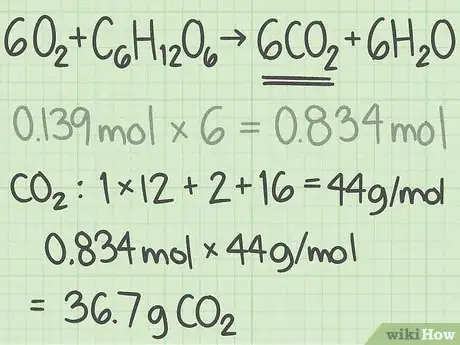 6O₂+C₆H₁₂O₆→6CO₂+6H₂O
0.139 mol × 6 = 0.834 mol
CO₂ : 1 × 12 + 2 + 16 = 44g/mol
0.834 mol × 44g/mol
= 36.7g CO₂
wikiHow